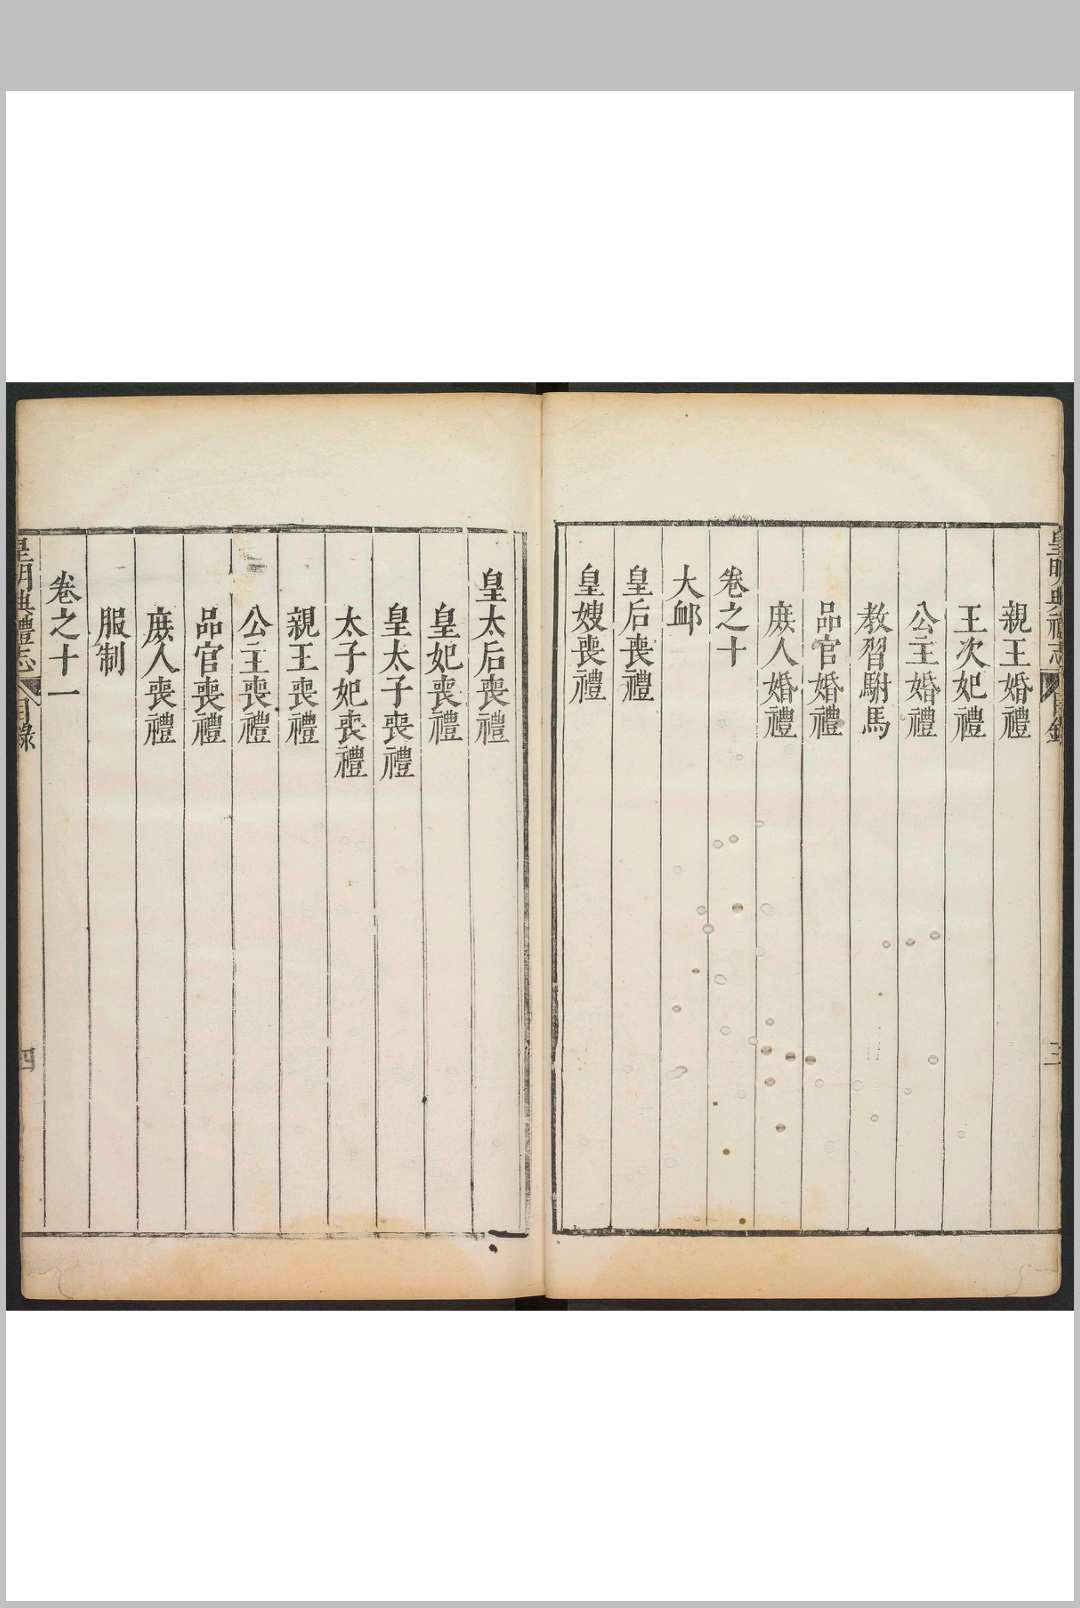 皇明典禮志 目錄 三
親王婚禮
王次妃禮
公主婚禮
教習駙馬
品官婚禮
庻人婚禮
卷之十
大䘏
皇后喪禮
皇嫂喪禮
皇太后喪禮
皇妃喪禮
皇太子喪禮
太子妃喪禮
親王喪禮
公主喪禮
品官喪禮
庻人喪禮
服制
卷之十一
皇明典禮志 目錄 四